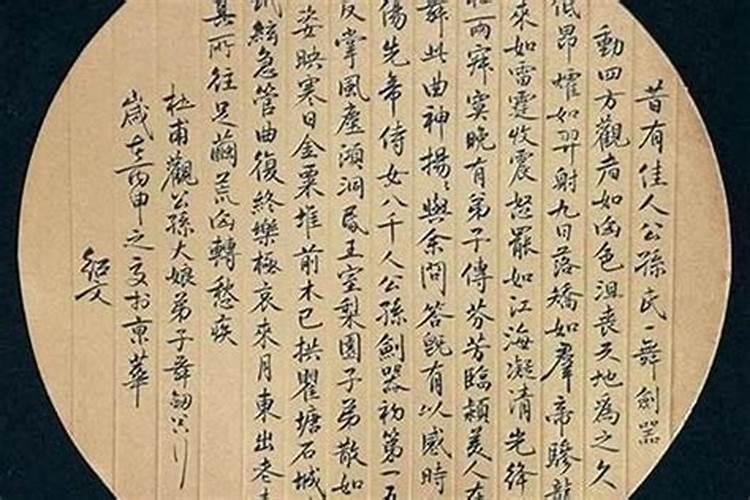 昔有佳人公孫氏一舞劍器
動四方觀者如山色沮喪天地為之久
低昂燿如羿射九日落矯如羣帝驂龍
來如雷霆收震怒罷如江海凝清光絳
兩寂寞晚有弟子傳芬芳臨潁美人在
舞此曲神揚揚與余問答既有以感時
傷先帝侍女八千人公孫劍器初第一五
反掌風塵澒洞昏王室梨園子弟散如
姿映寒日金粟堆前木已拱瞿塘石城
絃急管曲復終樂極哀來月東出老夫
其所往足繭荒山轉愁疾
杜甫觀公孫大娘弟子舞劍器行
歲在丙申之夏於京華
紹文